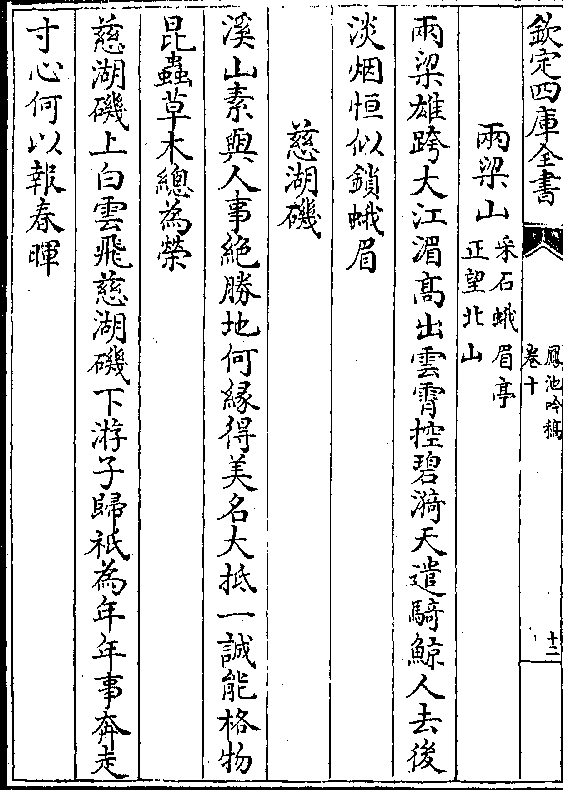 欽定四庫全書
鳳池吟稿
卷十
十二
兩梁山
采石蛾眉亭
正望北山
兩梁雄跨大江湄髙出雲霄控碧漪天遣騎鯨人去後
淡烟恒似鎖蛾眉
慈湖磯
溪山素與人事絶勝地何縁得美名大抵一誠能格物
昆蟲草木總為榮
慈湖磯上白雲飛慈湖磯下游子歸祇為年年事奔走
寸心何以報春暉